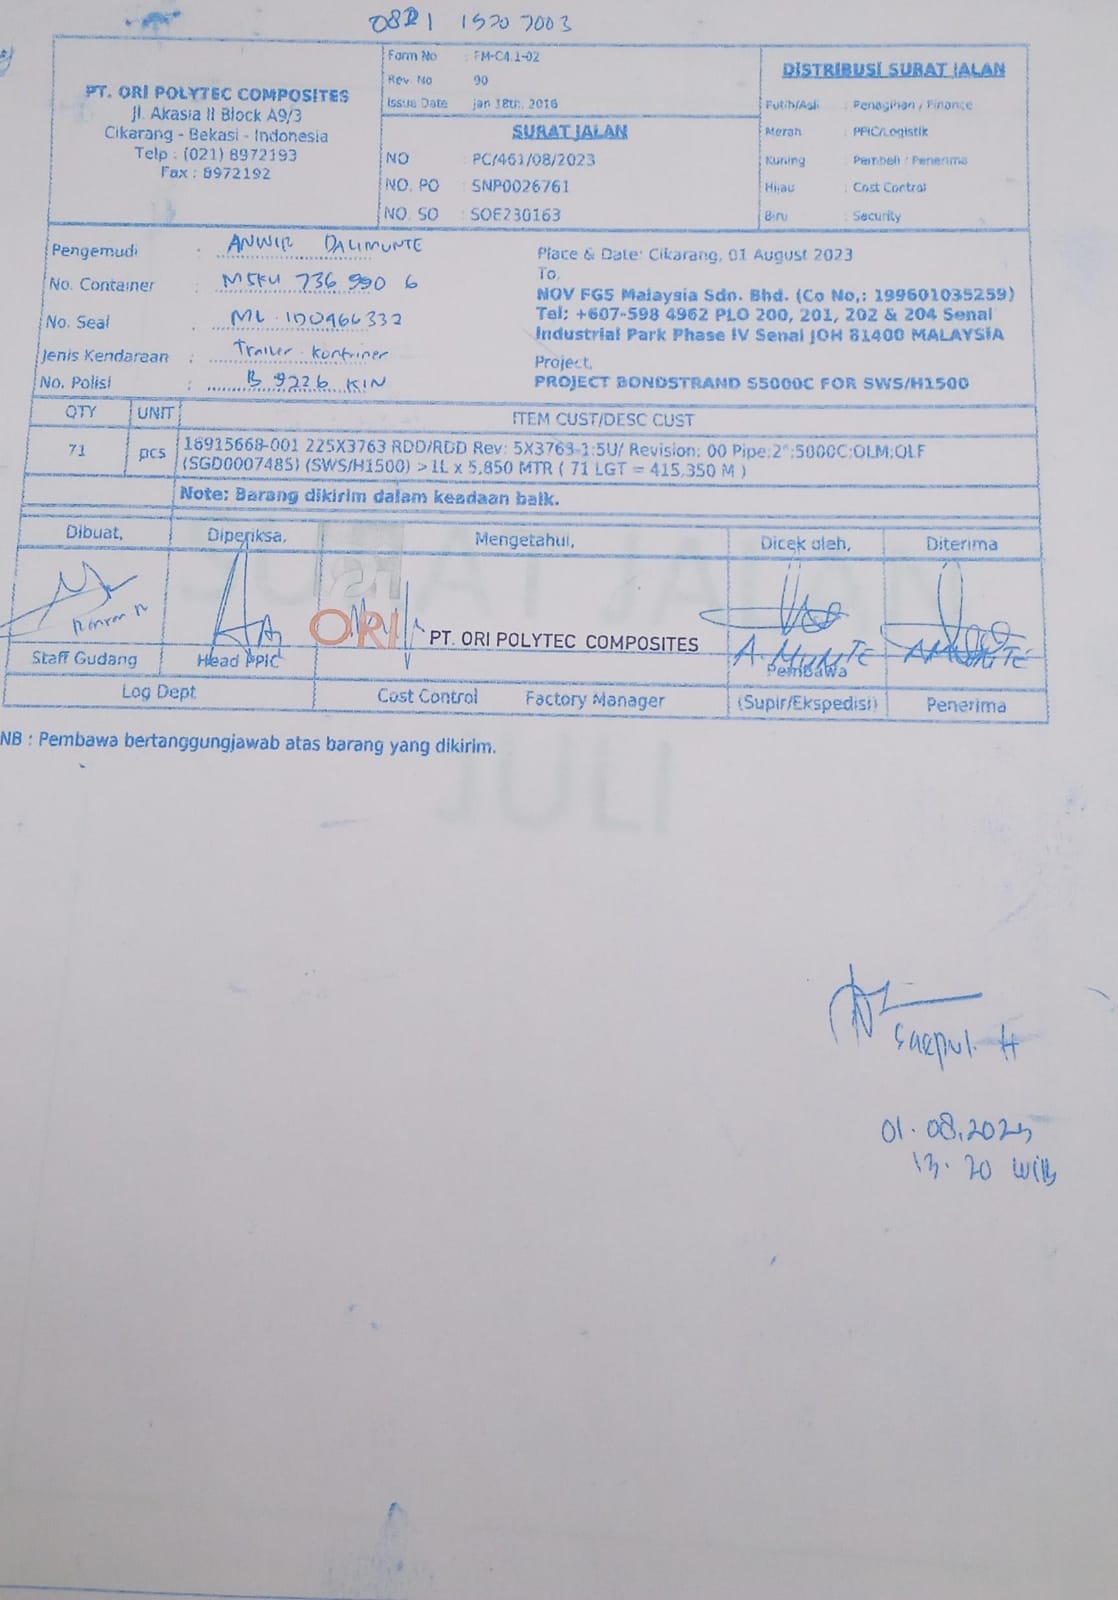 0821 1520 7003
PT. ORI POLYTEC COMPOSITES
Jl. Akasia II Block A9/3
Cikarang - Bekasi - Indonesia
Telp : (021) 8972193
Fax : 8972192
Form No : FM-C4.1-02
Rev. No 00
Issue Date jan 18th, 2016
SURAT JALAN
NO : PC/461/08/2023
NO. PO : SNP0026761
NO. SO : SOE230163
DISTRIBUSI SURAT JALAN
Putih/Asli : Penagihan / Finance
Merah : PPIC/Logistik
Kuning : Pembeli / Penerima
Hijau : Cost Control
Biru : Security
Pengemudi : ANWIR DALIMUNTE
No. Container : MSKU 736 990 6
No. Seal : ML.ID0466332
Jenis Kendaraan : Trailer Kontainer
No. Polisi : B 9226 KIN
Place & Date: Cikarang, 01 August 2023
To,
NOV FGS Malaysia Sdn. Bhd. (Co No,: 199601035259)
Tel: +607-598 4962 PLO 200, 201, 202 & 204 Senai
Industrial Park Phase IV Senai JOH 81400 MALAYSIA
Project,
PROJECT BONDSTRAND S5000C FOR SWS/H1500
QTY UNIT ITEM CUST/DESC CUST
71 pcs 16915668-001 225X3763 RDD/RDD Rev: 5X3763-1:5U/ Revision: 00 Pipe:2":5000C:OLM:OLF
(SGD0007485) (SWS/H1500) >1L x 5,850 MTR ( 71 LGT = 415,350 M )
Note: Barang dikirim dalam keadaan baik.
Dibuat, Diperiksa, Mengetahui, Dicek oleh, Diterima
ORI PT. ORI POLYTEC COMPOSITES
A. MUNTE
Staff Gudang Head PPIC Pembawa
Log Dept Cost Control Factory Manager (Supir/Ekspedisi) Penerima
NB : Pembawa bertanggungjawab atas barang yang dikirim.
JULI
Saepul. H
01.08.2023
13.20 WIB